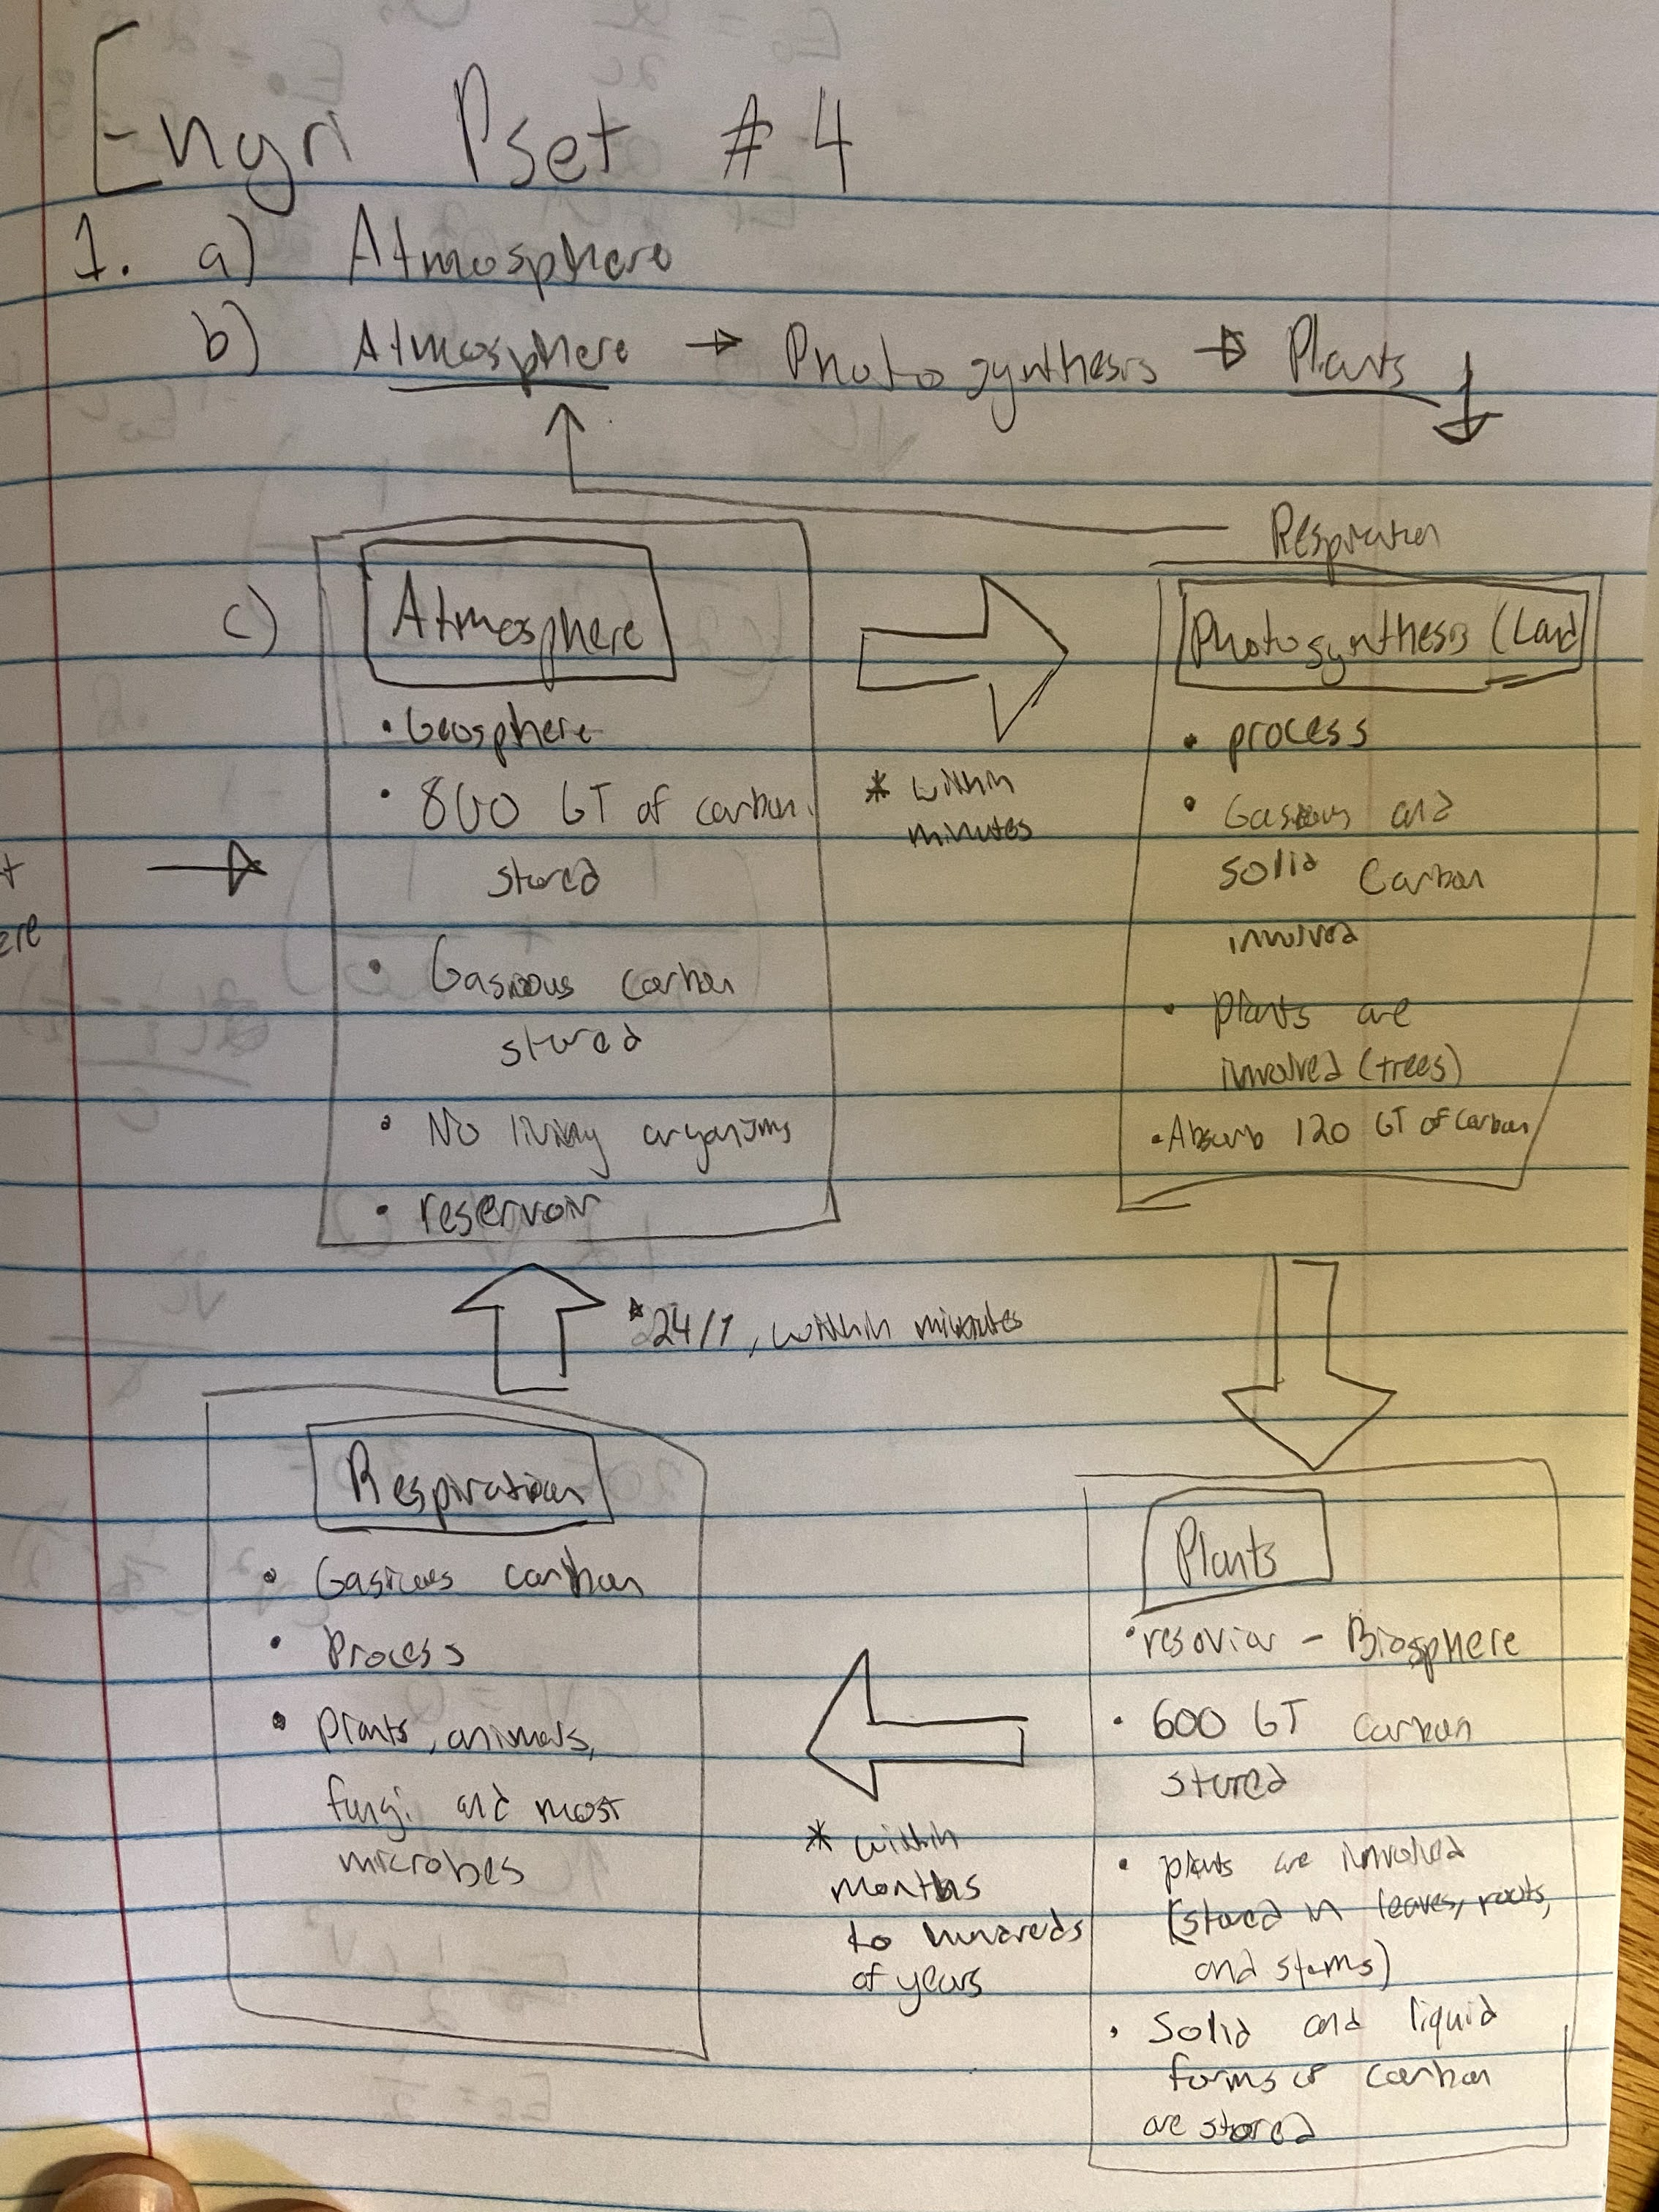 Engri Pset #4
1. a) Atmosphere
b) Atmosphere → Photosynthesis → Plants ↓
Respiration
c) Atmosphere
• Geosphere
• 800 GT of carbon
stored
• Gasious carbon
stored
• No living organisms
• reservoir
* within
minutes
Photosynthesis (Land
• process
• Gaseous and
solid Carbon
involved
• plants are
involved (trees)
• Absorb 120 GT of carbon
ere
* 24/7, within minutes
Respiration
• Gasious carbon
• Process
• Plants, animals,
fungi and most
microbes
* within
months
to hundreds
of years
Plants
• resoviar - Biosphere
• 600 GT carbon
stored
• plants are involved
(stored in leaves, roots,
and stems)
• Solid and liquid
forms of carbon
are stored